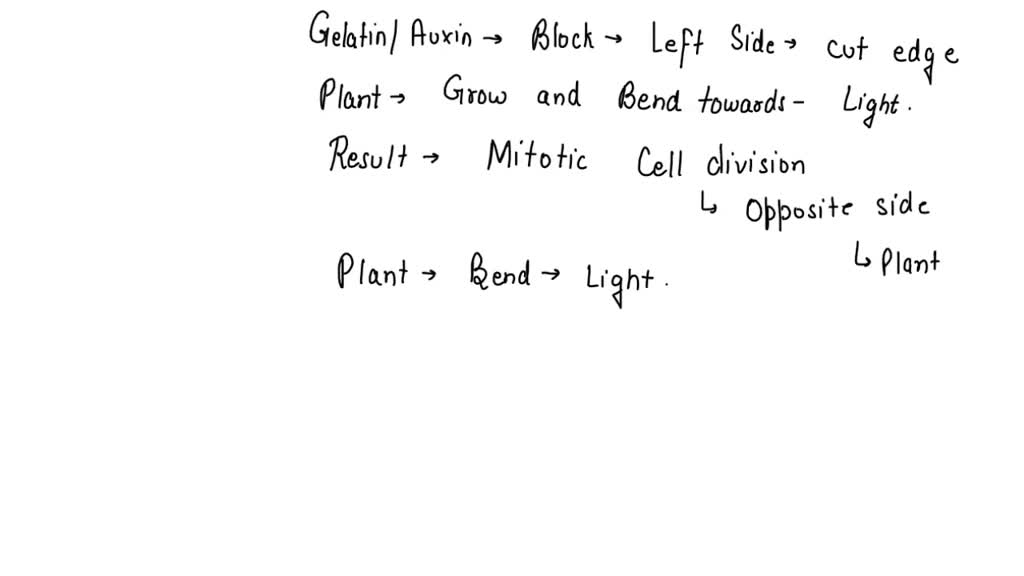 Gelatin/ Auxin → Block → Left Side → cut edge
Plant → Grow and Bend towards - Light.
Result → Mitotic Cell division
↳ Opposite side
↳ Plant
Plant → Bend → Light.